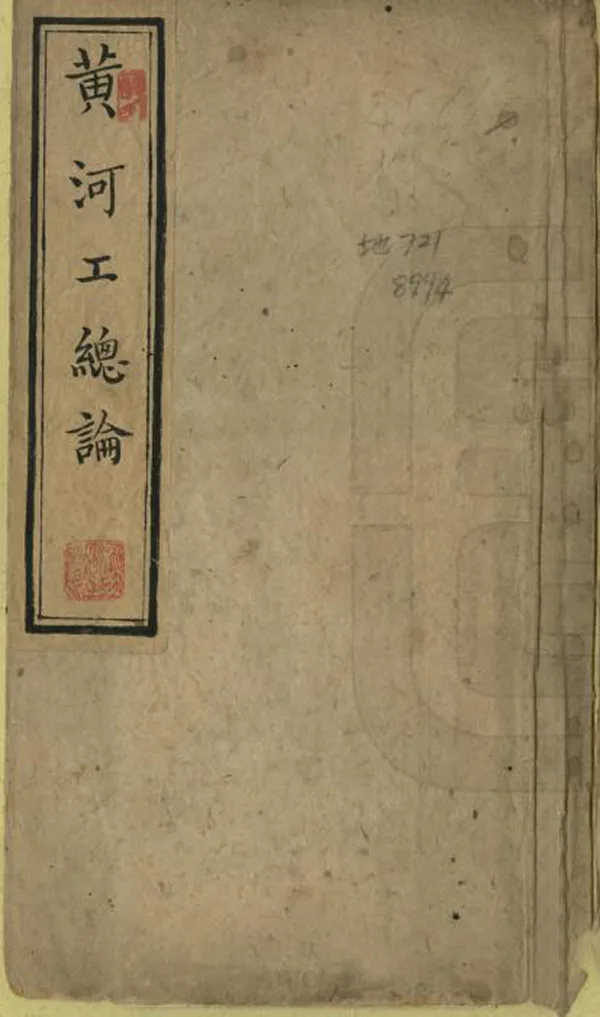 黄河工總論
地721
8994